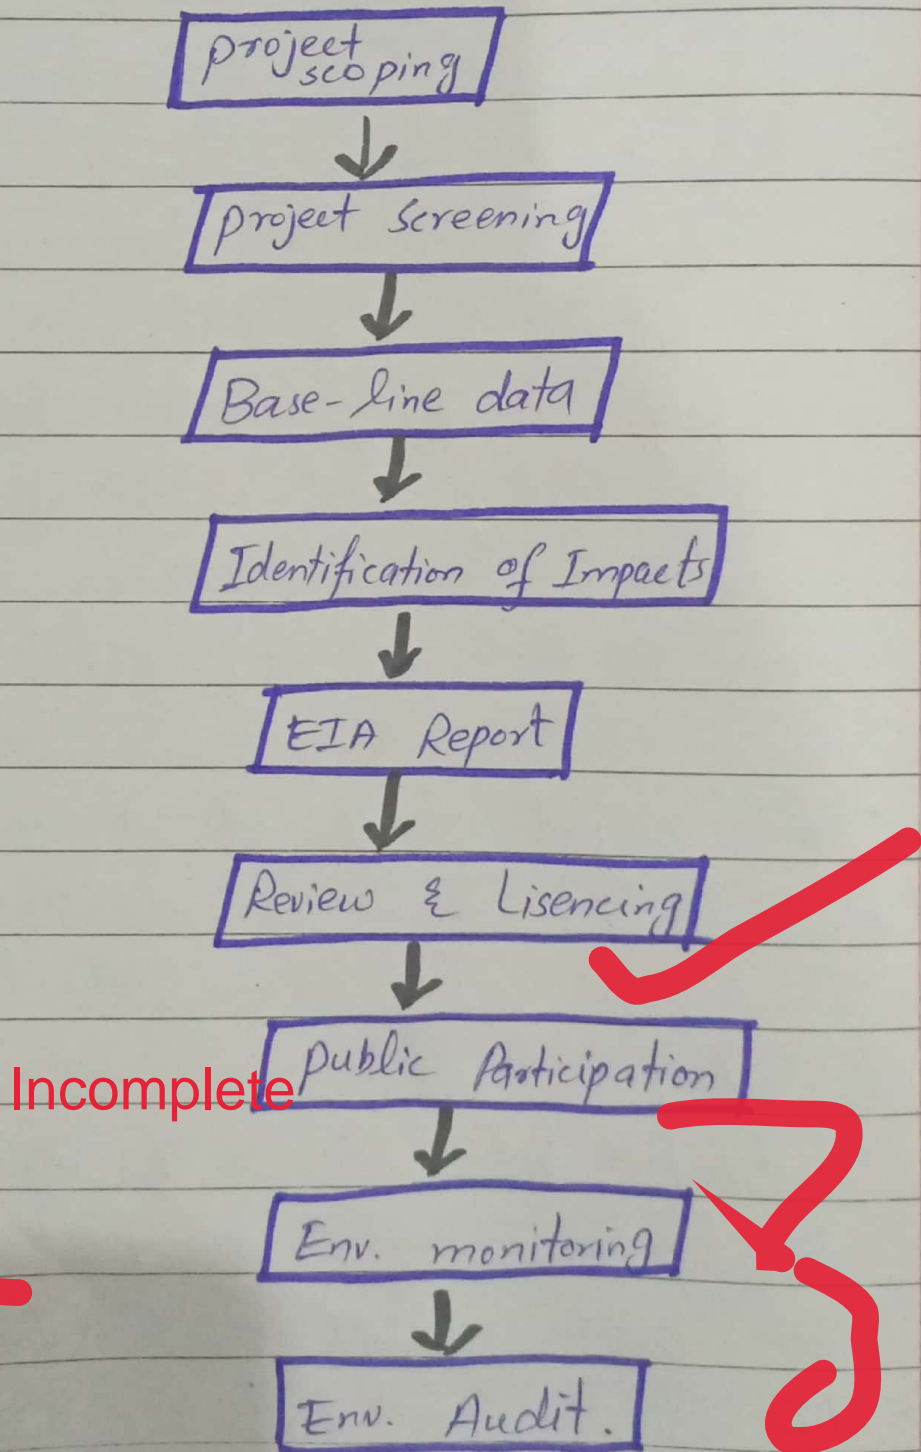 project
scoping
project screening
Base-line data
Identification of Impacts
EIA Report
Review & Lisencing
Public Participation
Incomplete
Env. monitoring
Env. Audit.